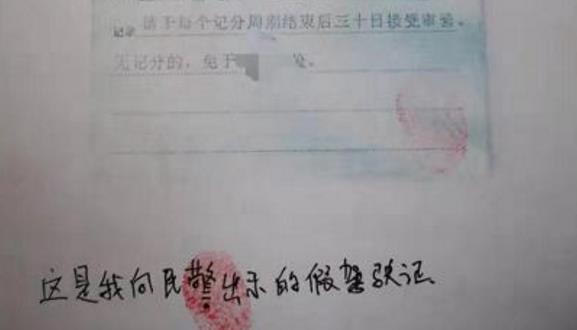 记录 请于每个记分周期结束后三十日接受审验。
无记分的，免于
这是我向民警出示的假驾驶证